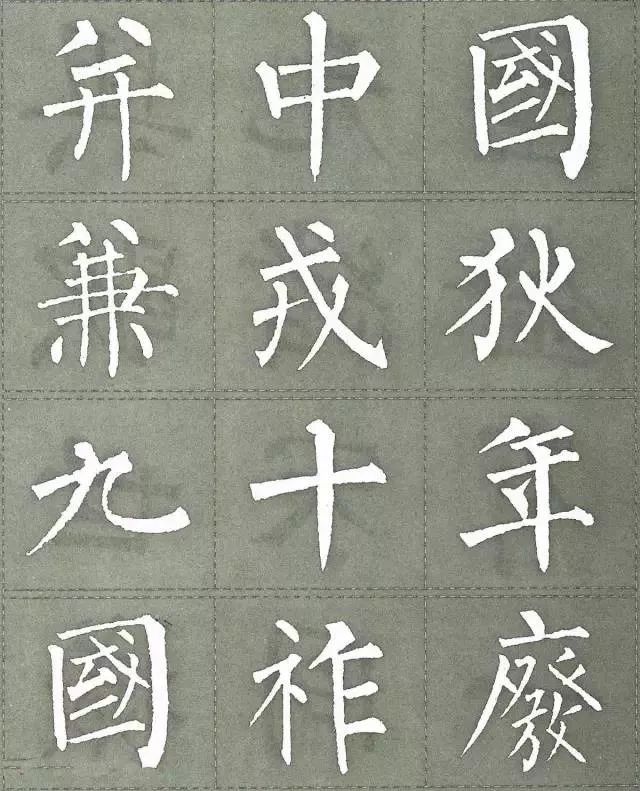 并中國
兼戎狄
九十年
國祚廢